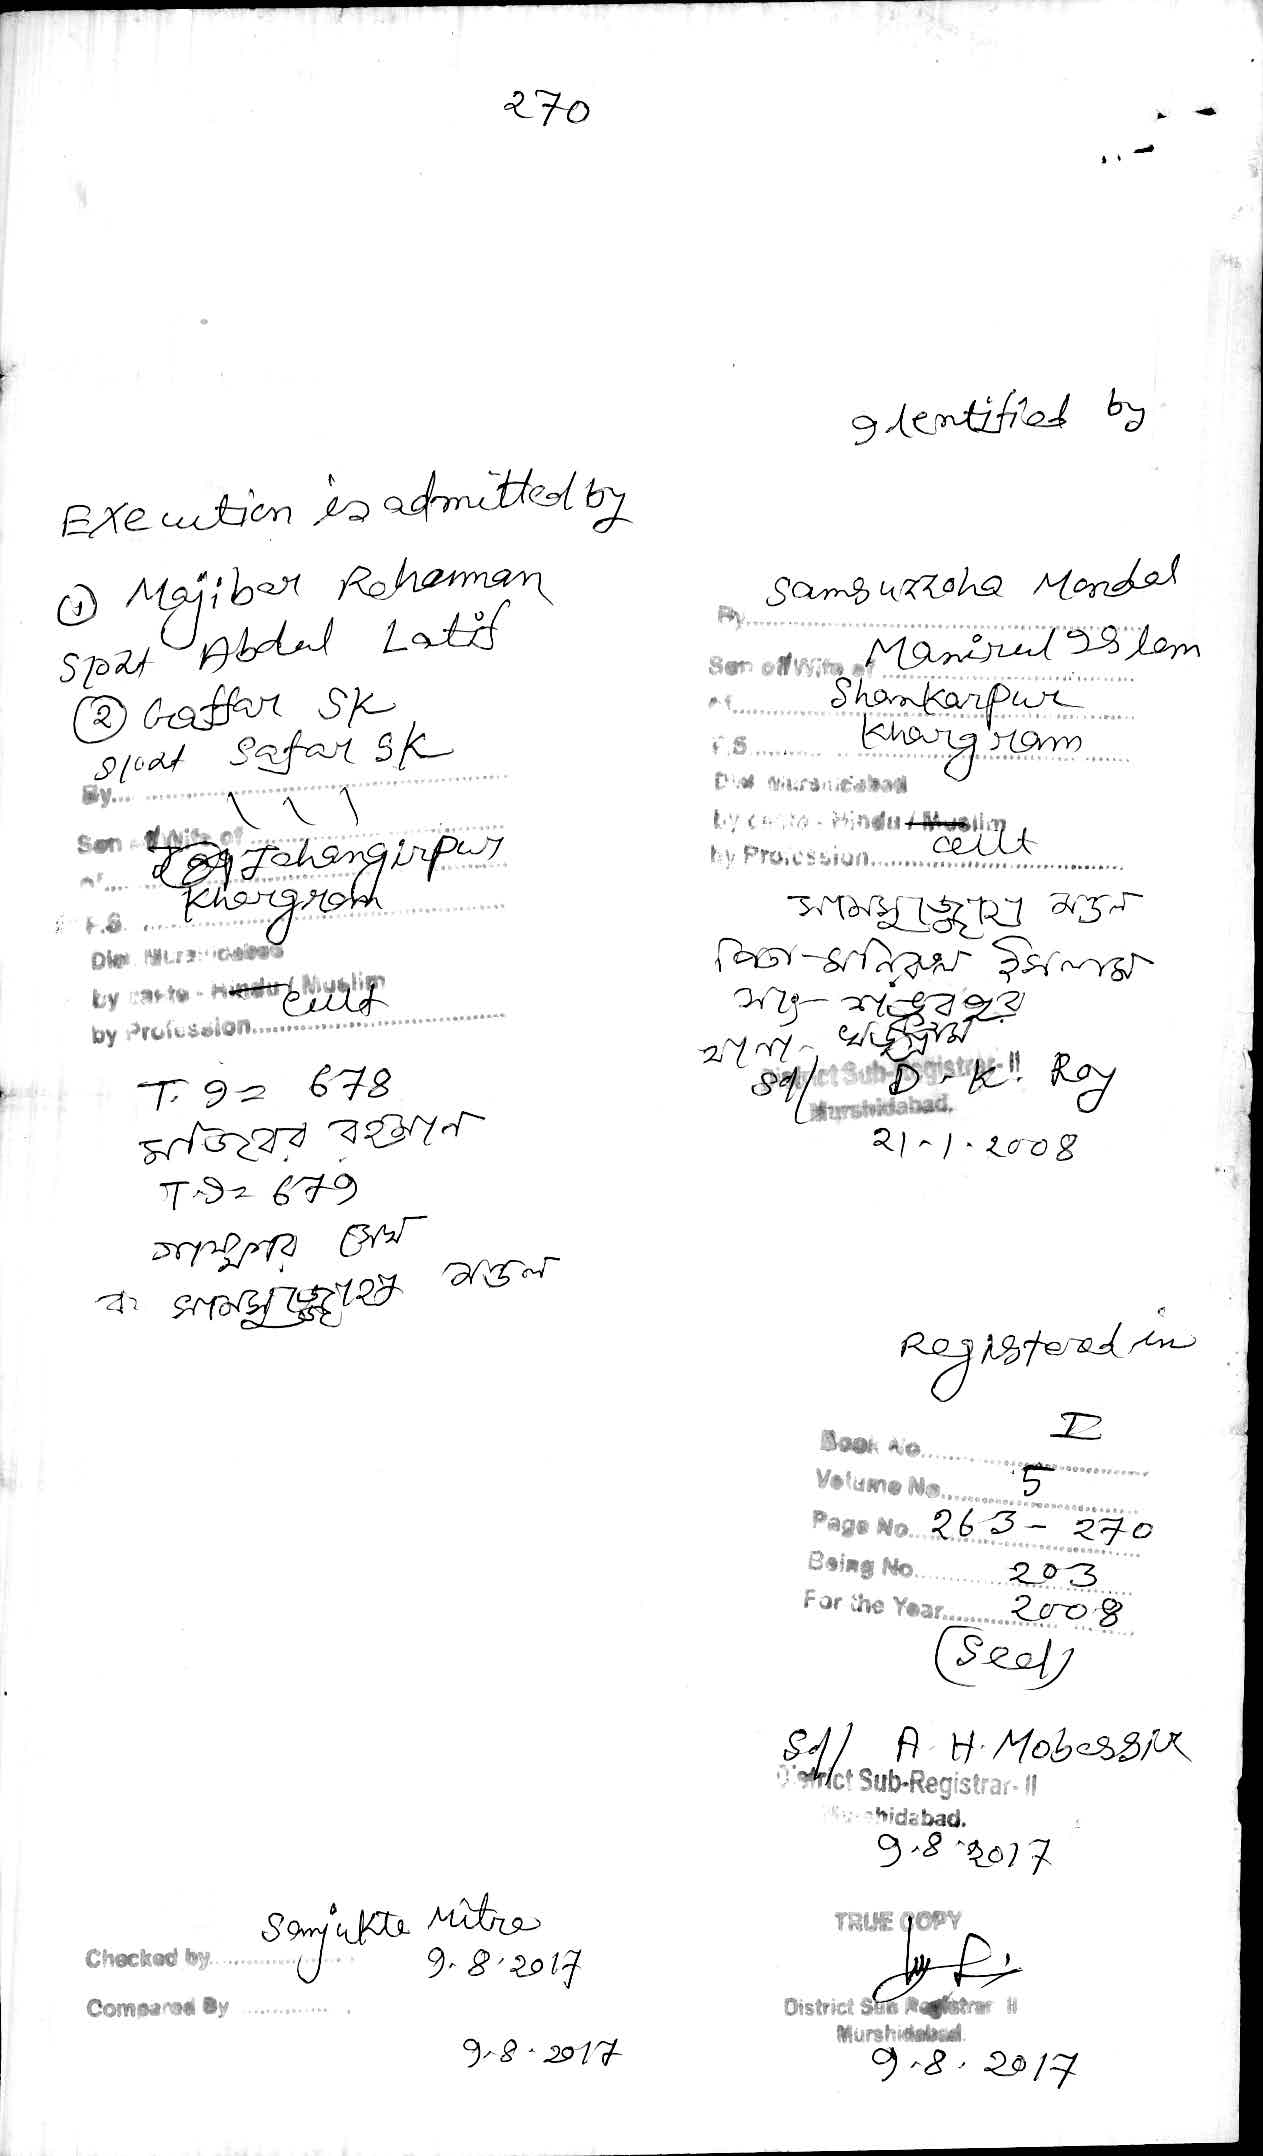 270
Identified by
Execution is admitted by
① Majibar Rahaman
S/o Lat Abdul Latif
② Gaffar SK
S/o Lat Safar SK
By
Son of/Wife of
Jahangirpur
of
Khargram
P.S.
Dist. Murshidabad
by caste - Hindu / Muslim
by Profession cult
T. I = 678
মজিবর রহমান
T. I = 679
গাফ্ফার সেখ
বঃ সামসুজ্জোহা মন্ডল
Samsuzzoha Mondal
By
Manirul Islam
Son of/Wife of
Shankarpur
of
Khargram
P.S.
Dist Murshidabad
by caste - Hindu / Muslim
by Profession cult
সামসুজ্জোহা মন্ডল
পিতা - মনিরুল ইসলাম
সাং - শঙ্করপুর
থানা - খড়গ্রাম
District Sub-Registrar-II
Sd/ D. K. Roy
Murshidabad.
21-1.2008
Registered in
Book No. I
Volume No. 5
Page No. 263 - 270
Being No. 203
For the Year 2008
(Seal)
Sd/ A. H. Mobassir
District Sub-Registrar-II
Murshidabad.
9.8.2017
Sanjukta Mitra
Checked by 9.8.2017
Compared By
9.8.2017
TRUE COPY
District Sub Registrar II
Murshidabad.
9.8.2017